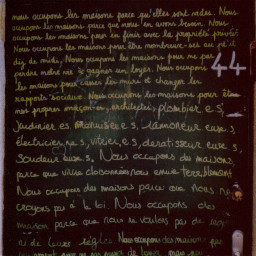 nous occupons les maisons parce qu'elles sont vides. Nous
occupons les maisons parce que nous en avons besoin. Nous
occupons les maisons pour en finir avec la propriété privée. Nous
occupons les maisons pour être nombreux-ses au p'tit
déj de midi. Nous occupons les maisons pour ne pas
perdre notre vie à gagner un loyer. Nous occupons
les maisons pour casser les murs et changer les
rapports sociaux. Nous occupons les maisons pour être
nos propres maçon-e-s, architectes, plombier.e.s,
44
jardinier.es menuisier.e.s, ramoneur.euse.s,
électricien.ne.s, vitrier.e.s, dératiseur.euse.s,
soudeur.euse.s. Nous occupons des maisons
parce que villes cloisonnées nous ennuie terriblement
Nous occupons des maisons parce que nous ne
croyons pas à la loi. Nous occupons des
maison parce que nous ne voulons pas de
ni de leurs règles. Nous occupons des maisons